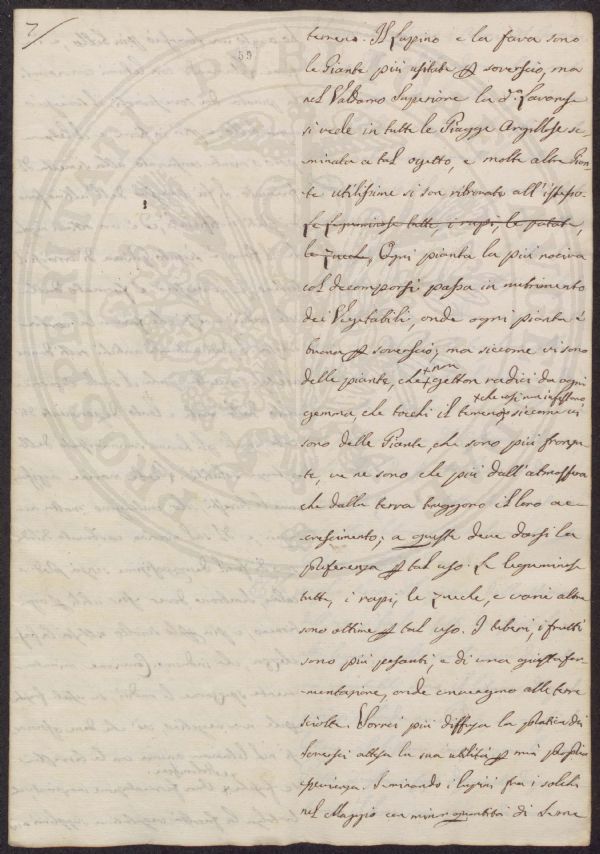 7/.
59
terreno. Il Lupino e la fava sono
le Piante più usitate p soverscio, ma
nel Valdarno Superiore la d.a Lavanese
si vede in tutte le Piagge Argillose se-
minata a tal ogetto, e molte altre Pian-
te utilissime si son ritrovate all'istesso.
Le leguminose tutte, i rapi, le patate,
le Zucche, Ogni pianta la più nociva
col decomporsi passa in nutrimento
dei Vegetabili, onde ogni pianta è
buona p soverscio; ma siccome vi sono
delle piante, che +non gettan radici da ogni
+che così non infestano
gemma che tocchi il terreno, siccome vi
sono delle Piante, che sono più fronzu-
te, ve ne sono che più dall'atmosfera
che dalla terra traggono il loro ac-
crescimento; a queste deve darsi la
preferenza p tal uso. Le leguminose
tutte, i rapi, le zucche, e varie altre
sono ottime p tal uso. I tuberi, i frutti
sono più pesanti, e di una fer-
mentazione, onde alle terre
sciolte. Vorrei più diffusa la pratica dei
Soversci attesa la sua utilità p mia propria
sperienza. Seminando i lupini fra i solchi
nel Maggio con minor quantità di Seme